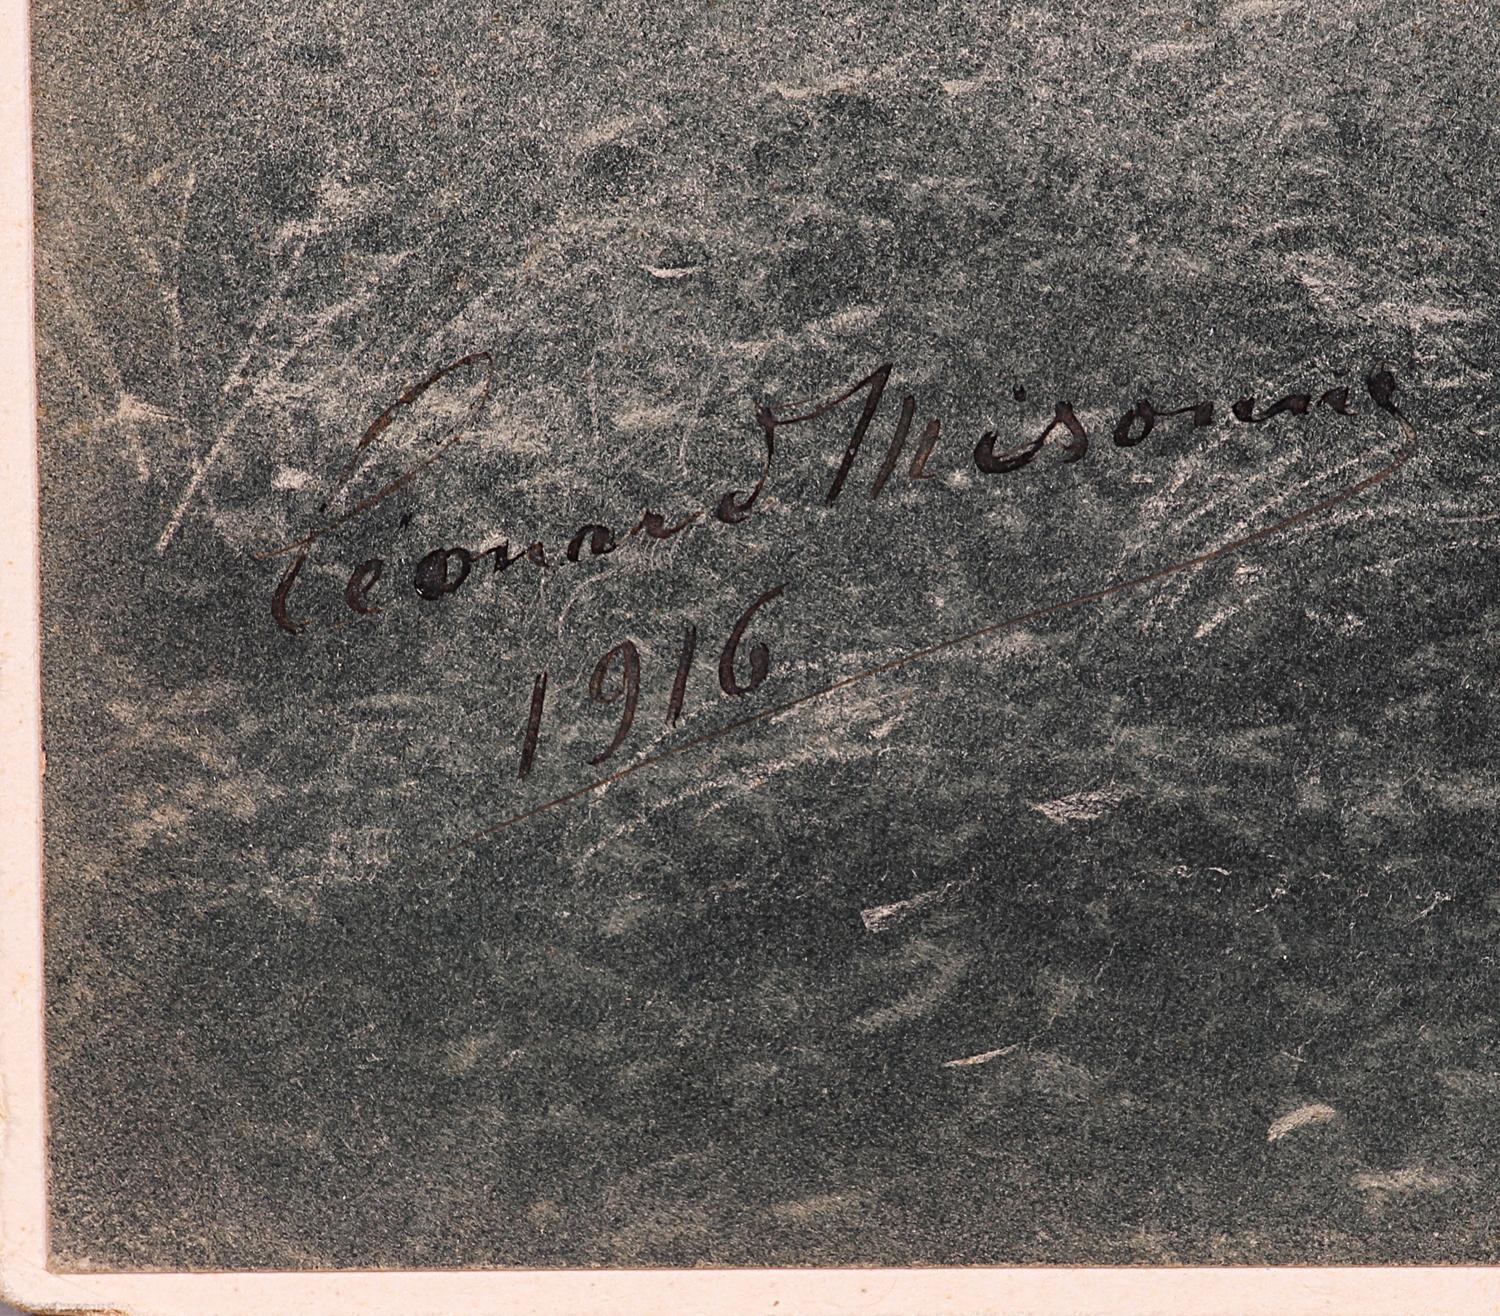 Léonard Misonne
1916